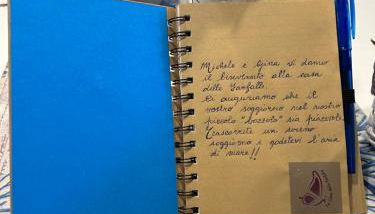 Michele e Gina vi danno
il benvenuto alla casa
delle farfalle.
Ci auguriamo che il
vostro soggiorno nel nostro
piccolo "bozzolo" sia piacevole.
Trascorrete un sereno
soggiorno e godetevi l'aria
di mare!!